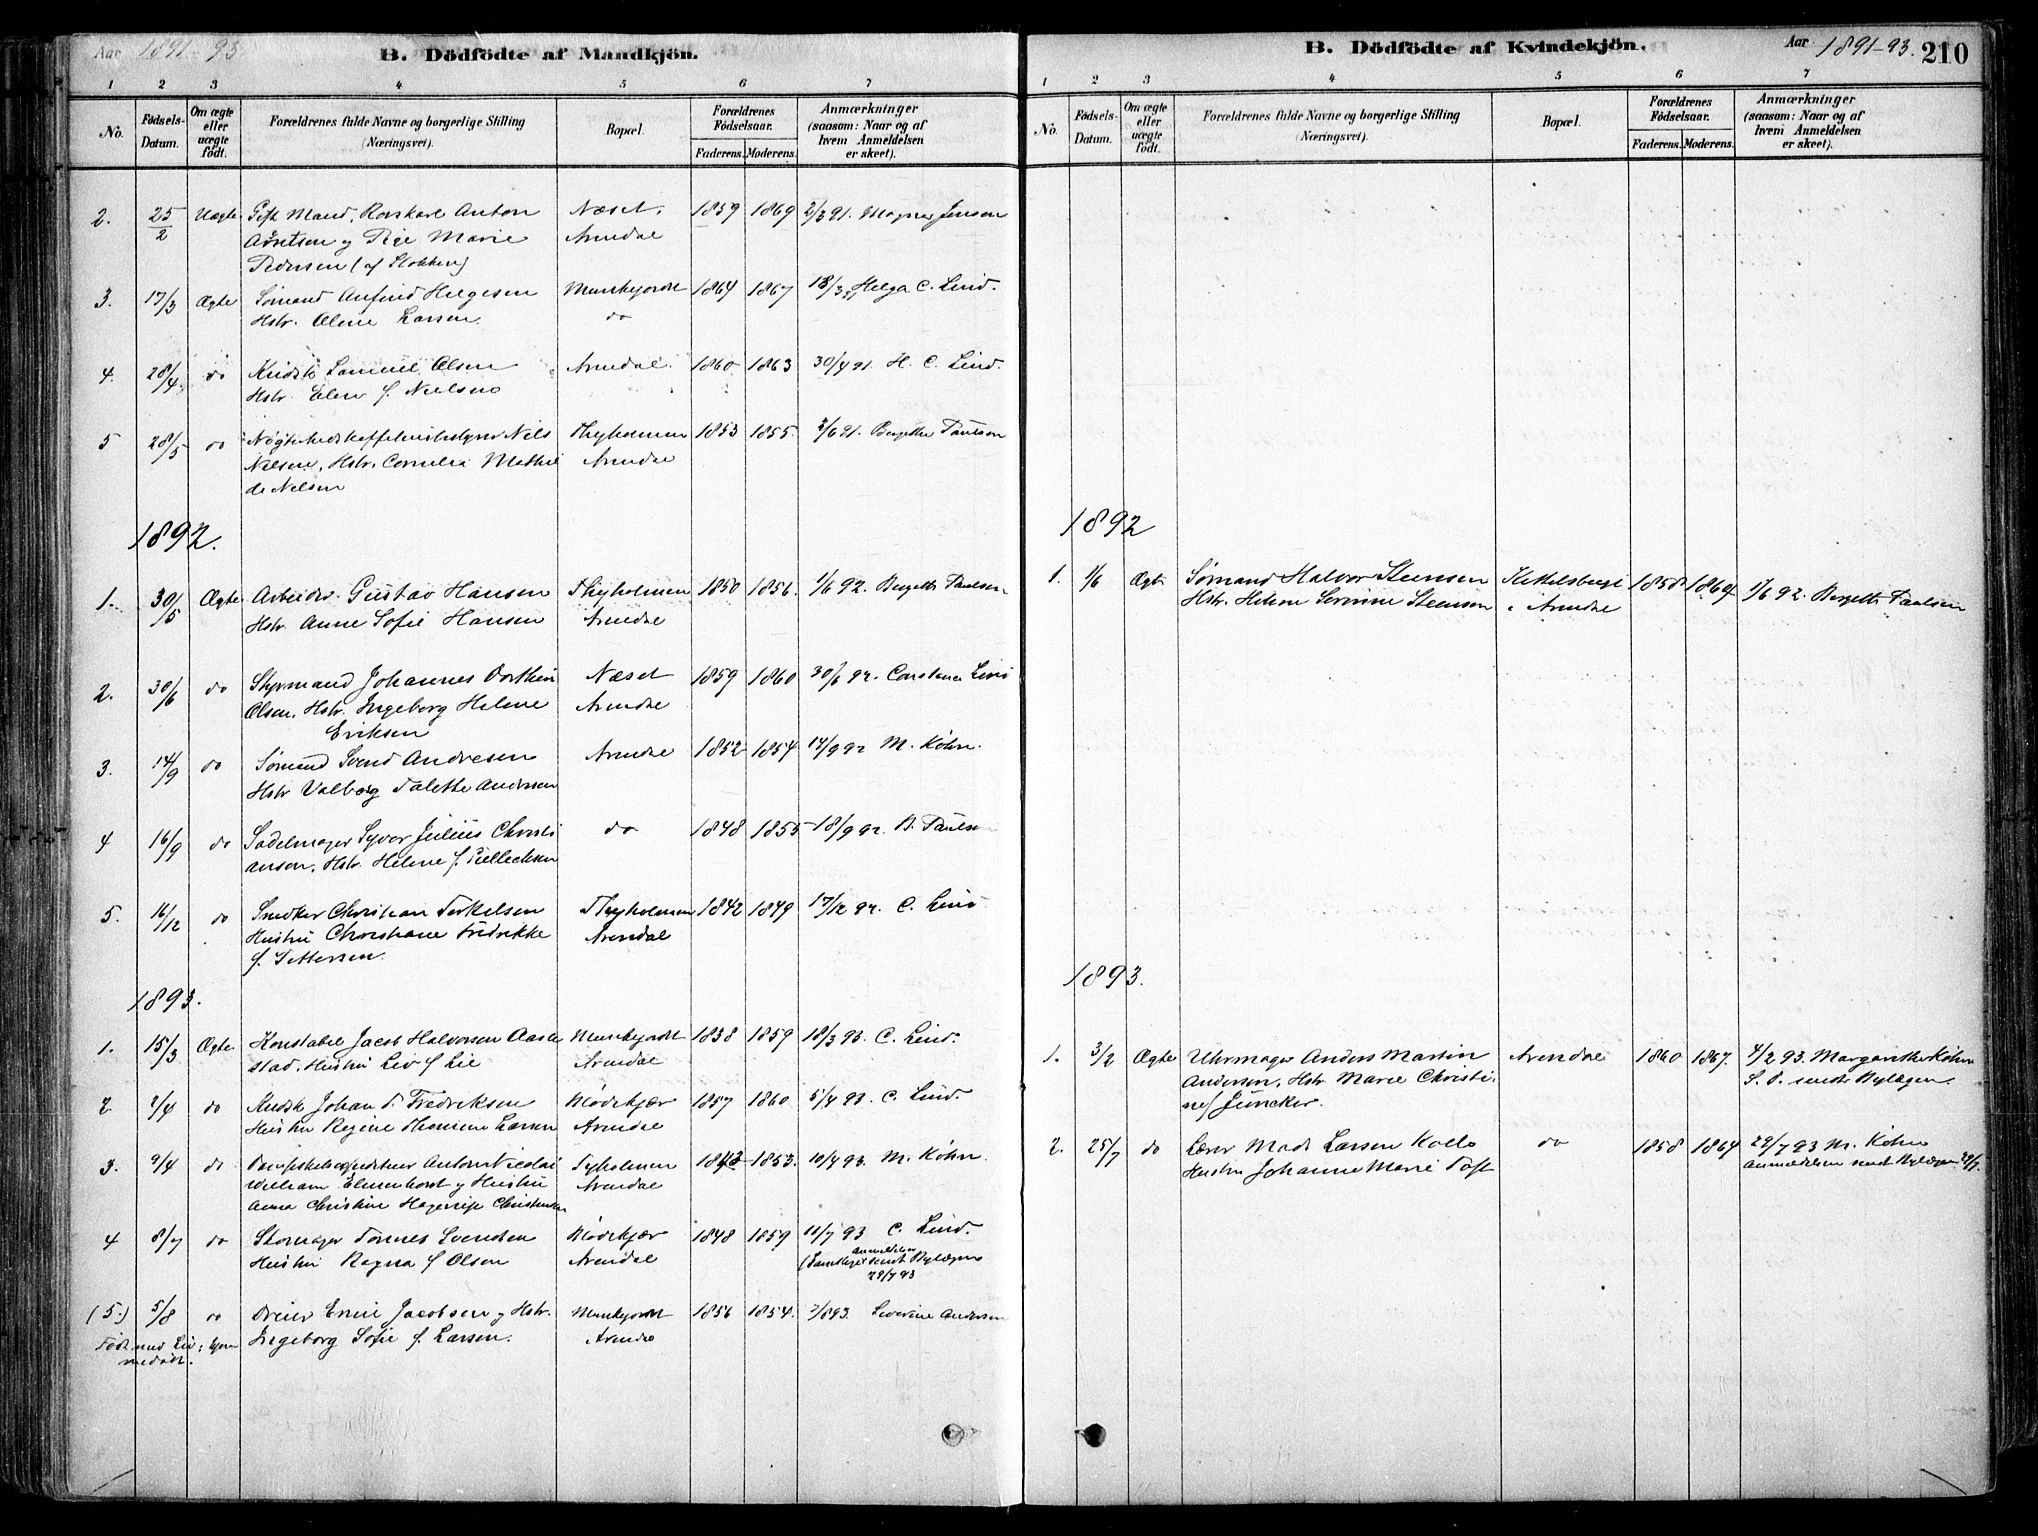 Aar 1891-93
B. Dödfödte af Mandkjön.
1 2 3 4 5 6 7
No.
Födsels-
Datum.
Om ægte
eller
uægte
födt.
Forældrenes fulde Navne og borgerlige Stilling
(Næringsvei).
Bopæl.
Forældrenes
Födselsaar.
Faderens. Moderens.
Anmærkninger
(saasom: Naar og af
hvem Anmeldelsen
er skeet).
2. 25/2 Uægte Gift Mand, Anton Næset. 1859 1869 2/3 91. Magna Jensen
y Pige Marie Arendal
Pedersen (af Stokken)
3. 17/3 Ægte Sömand Anfind Helgesen Munkejordet 1864 1867 18/3 91 Helga C. Lind.
Hstr. Oline Larsen. do
4. 28/4 do Samuel Olsen Arendal. 1860 1863 30/4 91. H. C. Lind.
Hstr. Elen f. Nielsen
5 28/5 do Nils Thyholmen 1853 1855. 2/6 91. Bergethe Paulsen
Nielsen, Hstr. Cornelia Mathil Arendal
de Nielsen
1892.
1. 30/5 Ægte Arbeider Gustav Hansen Thyholmen 1850 1856. 1/6 92. Bergethe Paulsen
Hstr. Anne Sofie Hansen Arendal
2. 30/6 do Styrmand Johannes Næset 1859 1860 30/6 92. Constance Lind
Olsen, Hstr. Ingeborg Helene Arendal
Eriksen
3. 14/9 do Sömand Svend Andresen Arendal 1852 1854 14/9 92 M. Köhn.
Hstr Valborg Talette Andresen
4 16/9 do Sadelmager Syver Julius Christi do 1848 1855 18/9 92. B. Paulsen
ansen, Hstr. Helene f.
5. 16/12 do Snedker Christian Terkelsen Thyholmen 1842 1849 17/12 92. C. Lind
Hustru Christiane Fredrikke Arendal
f. Pettersen.
1893.
1. 15/3 Ægte Konstabel Jacob Halvorsen Munkejordet 1838 1859 18/3 93. C. Lind.
stad, Hustru Liv f Lie Arendal
2 2/4 do Johan Fredriksen Blödekjær 1857 1860 5/4 93. C. Lind.
Hustru Regine Larsen Arendal
3. 9/4 do Dampskibsexpediteur Anton Nicolai Tyholmen 1843 1853. 10/4 93. M. Köhn.
William Elmenhorst y Hustru Arendal
Anna Christine Christensen
4 8/7 do Skomager Tönnes Svendsen Blödekjær 1848 1859 11/7 93 C. Lind.
Hustru Ragna f Olsen Arendal anmeldelsen
sendt Bylægen
29/7 93
(5.) 5/8 do Jacobsen y Hstr. Munkejordet 1856 1854. 7/8 93. Severine Andersen
Födt med Liv; Ingeborg Sofie f. Larsen. Arendal
B. Dödfödte af Kvindekjön.
Aar 1891-93. 210
1 2 3 4 5 6 7
No.
Födsels-
Datum.
Om ægte
eller
uægte
födt.
Forældrenes fulde Navne og borgerlige Stilling
(Næringsvei).
Bopæl.
Forældrenes
Födselsaar.
Faderens. Moderens.
Anmærkninger
(saasom: Naar og af
hvem Anmeldelsen
er skeet).
1892
1. 1/6 Ægte Sömand Halvor Steensen Kittelsbugt 1858 1864 1/6 92. Bergethe Paulsen
Hstr. Helene Serinne Steensen i Arendal
1893.
1. 3/2 Ægte Uhrmager Anders Martin Arendal 1860 1867. 4/2 93. Margarethe Köhn
Andersen, Hstr Marie Christi- S. D. sendt Bylægen.
ne f Juncker.
2. 25/7 do Lærer Mads Larsen Kolle do 1858 1864 29/7 93 M. Köhn
Hustru Johanne Marie Toft anmeldelsen sendt Bylægen 29/7.